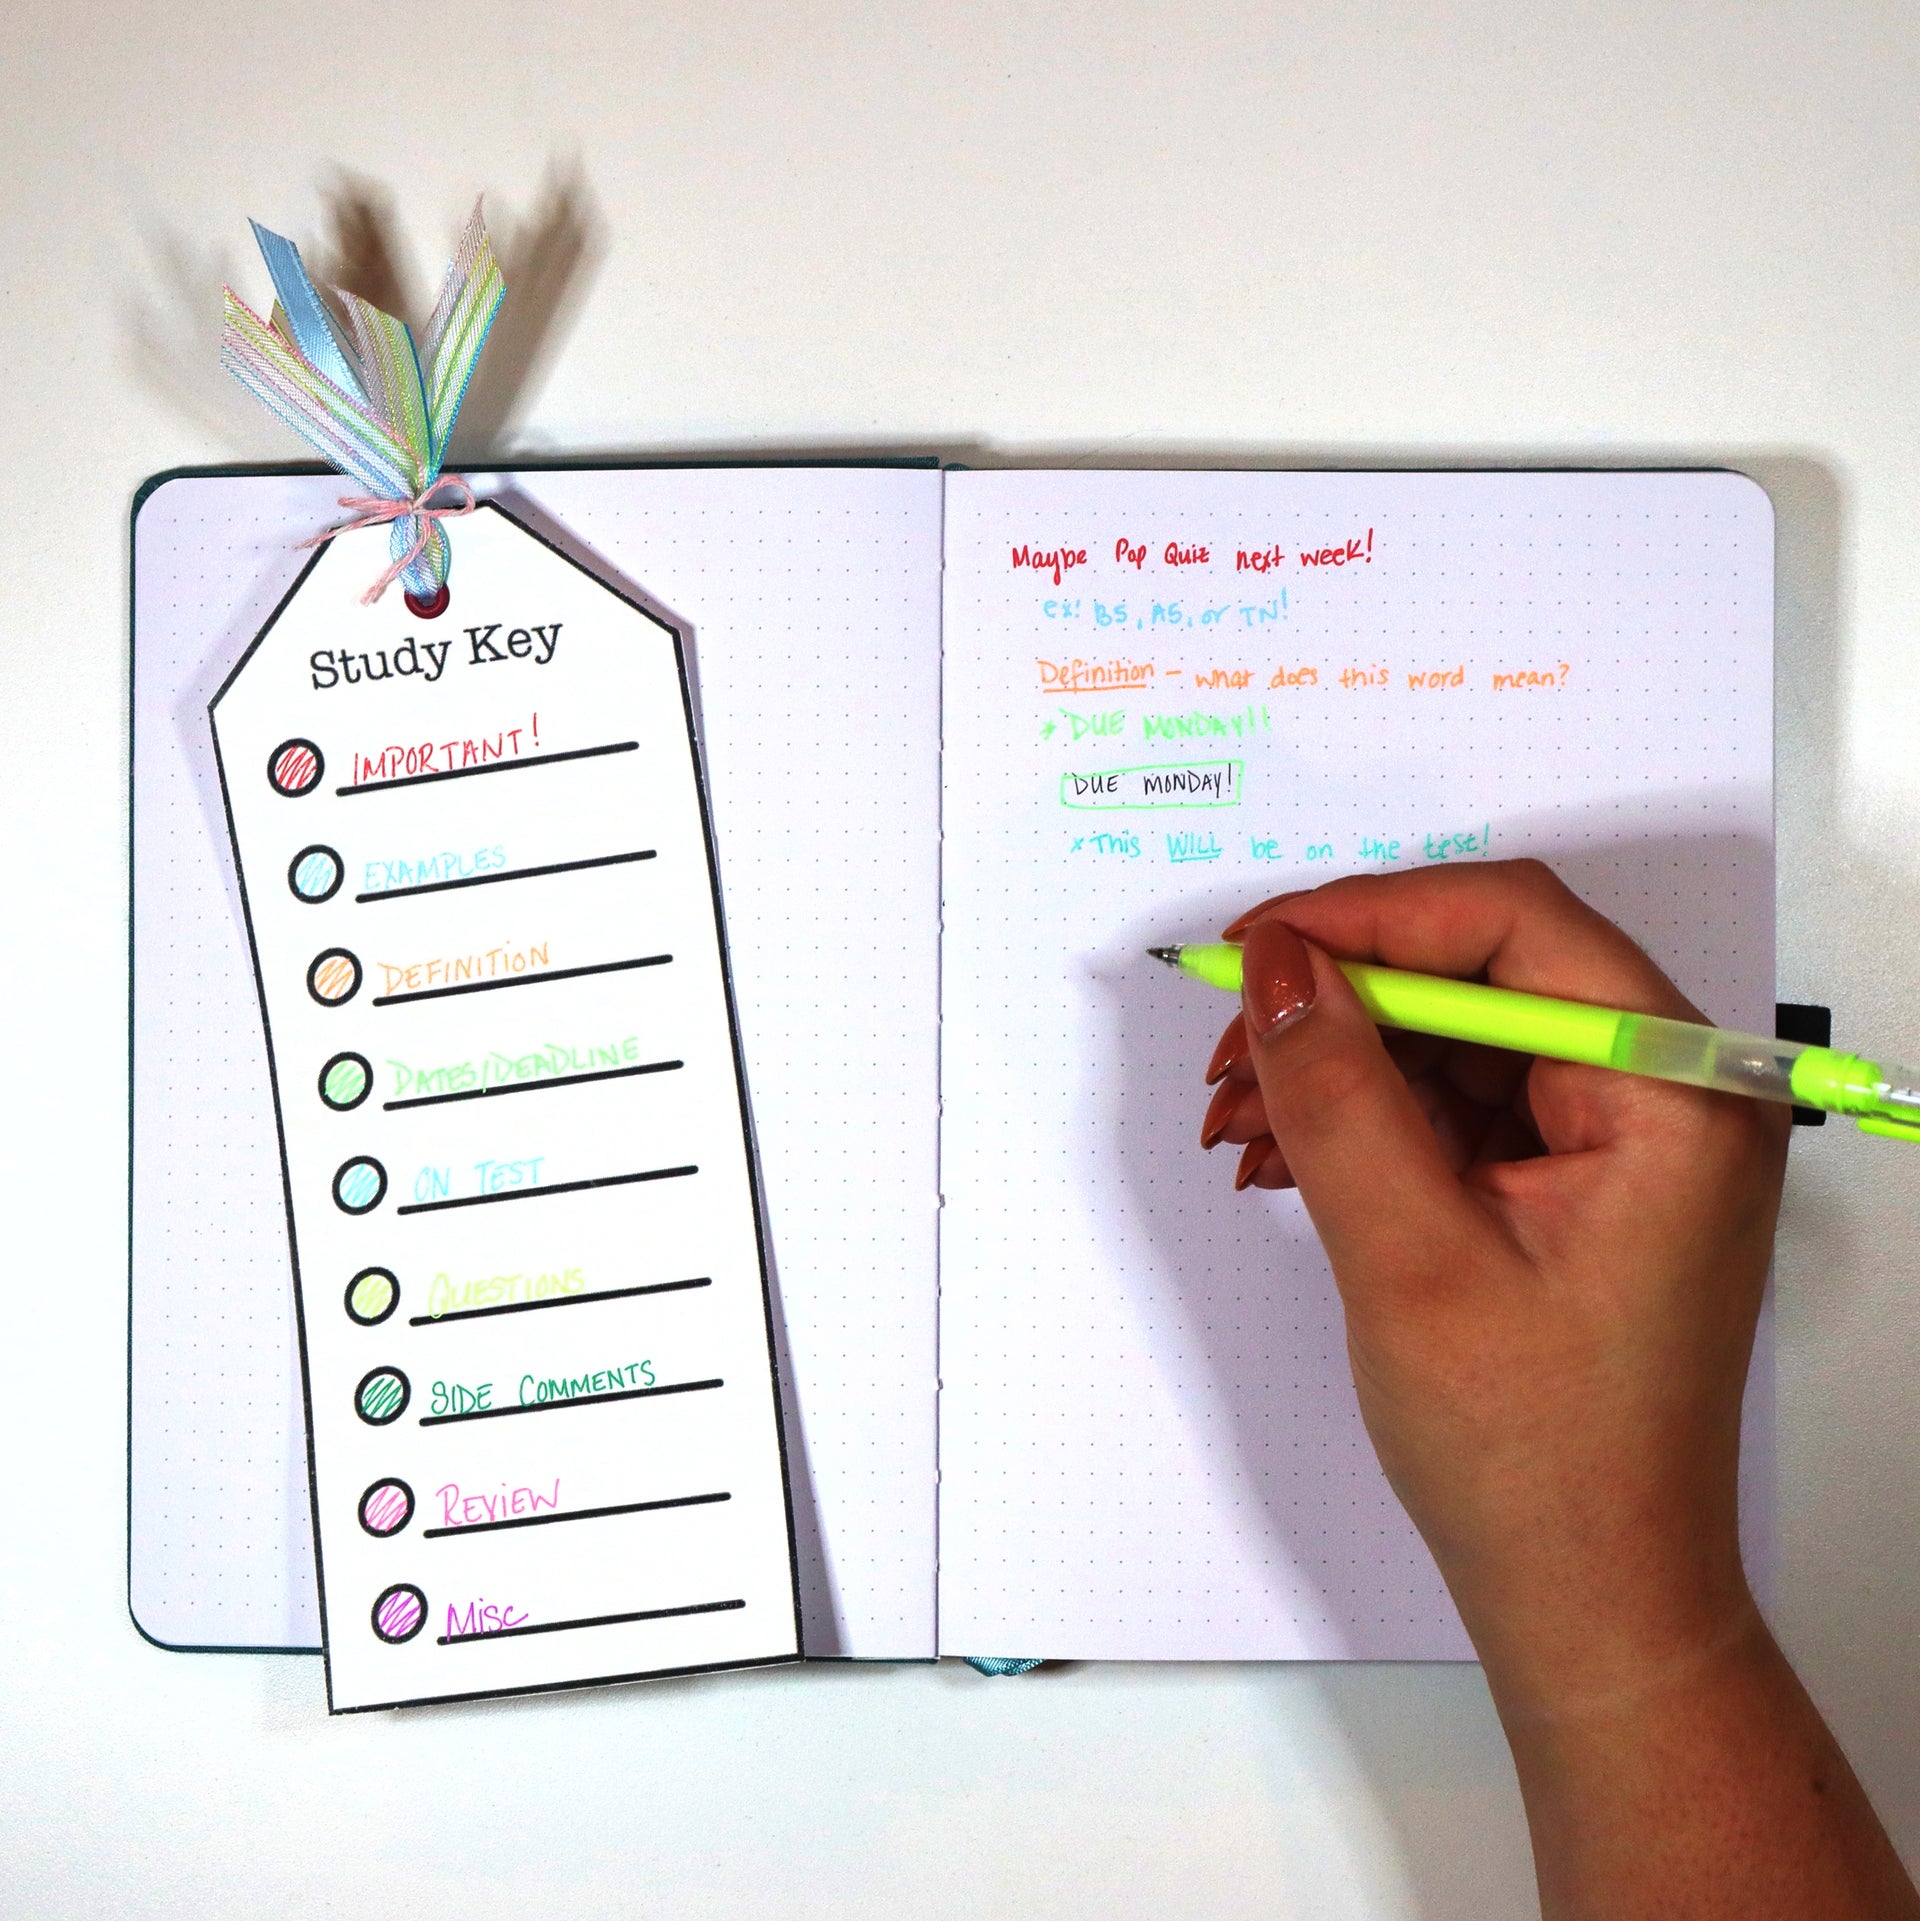 Study Key
IMPORTANT!
EXAMPLES
DEFINITION
DATES/DEADLINE
ON TEST
QUESTIONS
SIDE COMMENTS
REVIEW
Misc
Maybe Pop Quiz next week!
ex: BS, AS, or TN!
Definition - what does this word mean?
* DUE MONDAY!!
DUE MONDAY!
* This WILL be on the test!